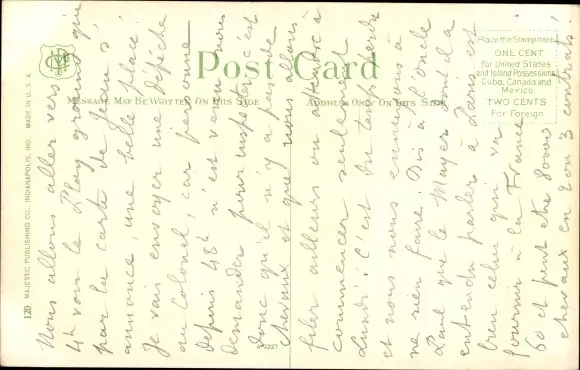 Post Card
MESSAGE MAY BE WRITTEN ON THIS SIDE
ADDRESS ONLY ON THIS SIDE
Place the Stamp Here
ONE CENT
for United States
and Island Possessions
Cuba, Canada and
Mexico.
TWO CENTS
For Foreign
120 MAJESTIC PUBLISHING CO., INDIANAPOLIS, IND. MADE IN U.S.A.
Nous allons aller vers
4h voir le Play ground qui
par la carte de Jean s'
annonce une belle place!
Je vais envoyer une dépêche
au Colonel, car personne
depuis 48h n'est venu nous
demander pour inspecter, c'est
donc qu'il n'y a pas de
chevaux et que nous allons
filer ailleurs ou attendre à
commencer seulement
Lundi! C'est du temps perdu
et nous nous ennuyons à
ne rien faire. Dis à l'oncle
Paul que le Mayer dont il a
entendu parler à Paris est
bien celui qui va
fournir à la France
60 et peut être 80000
chevaux en 2 ou 3 contrats!